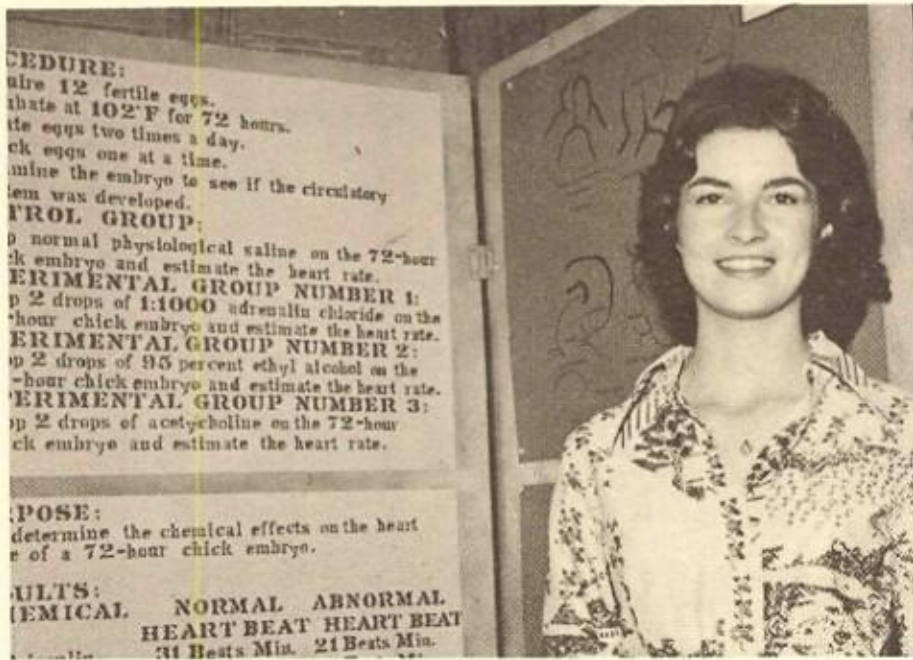 CEDURE:
uire 12 fertile eggs.
ubate at 102°F for 72 hours.
ate eggs two times a day.
ck eggs one at a time.
mine the embryo to see if the circulatory
tem was developed.
TROL GROUP:
p normal physiological saline on the 72-hour
ck embryo and estimate the heart rate.
ERIMENTAL GROUP NUMBER 1:
op 2 drops of 1:1000 adrenalin chloride on the
-hour chick embryo and estimate the heart rate.
ERIMENTAL GROUP NUMBER 2:
op 2 drops of 95 percent ethyl alcohol on the
-hour chick embryo and estimate the heart rate.
PERIMENTAL GROUP NUMBER 3:
op 2 drops of acetycholine on the 72-hour
ck embryo and estimate the heart rate.
RPOSE:
determine the chemical effects on the heart
e of a 72-hour chick embryo.
ULTS:
EMICAL NORMAL ABNORMAL
HEART BEAT HEART BEAT
31 Beats Min. 21 Beats Min.